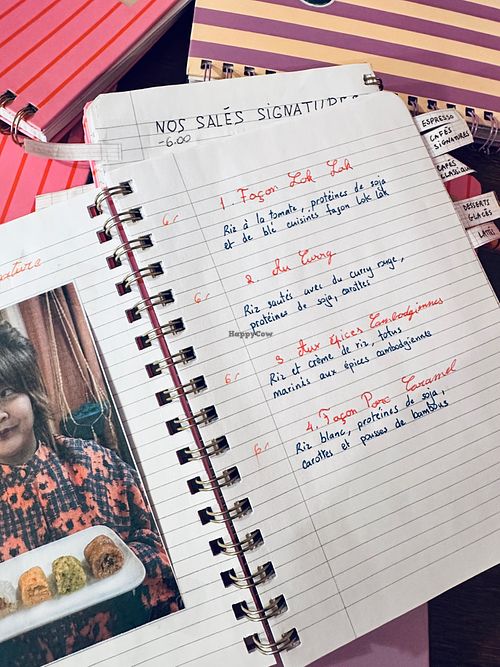 NOS SALÉS SIGNATURES
-6.00
ESPRESSO
CAFÉS
SIGNATURES
CAFÉS
CLASSIQUES
DESSERTS
GLACÉS
LATTÉS
1. Façon Lok Lak
6,-
Riz à la tomate, protéines de soja
et de blé cuisinés façon lok lak
2. Au Curry
6,-
Riz sautés avec du curry rouge,
protéines de soja, carottes
3. Aux épices Cambodgiennes
6,-
Riz et crème de riz, tofus
marinés aux épices cambodgiennes
4. Façon Porc Caramel
Riz blanc, protéines de soja,
carottes et pousses de bambous
HappyCow